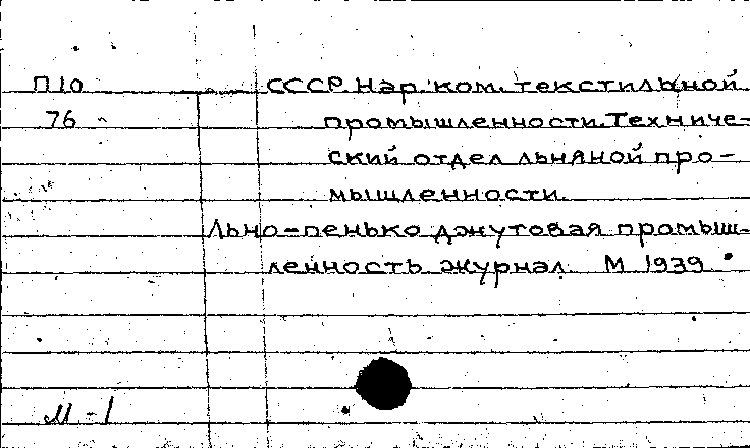 П10 СССР. Нар. ком. текстильной
76 промышленности. Техниче-
ский отдел льняной про-
мышленности.
Льно-пенько джутовая промыш-
ленность журнал. М 1939
М-1